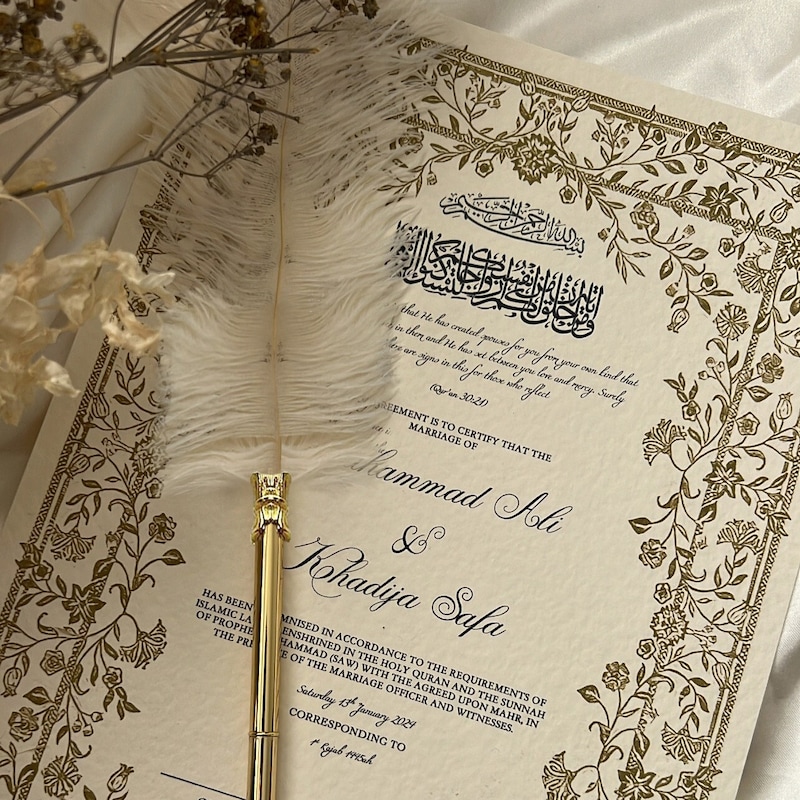 بسم الله الرحمن الرحيم
ومن آياته أن خلق لكم من أنفسكم أزواجا لتسكنوا
that He has created spouses for you from your own kind that
in them and He has set between you love and mercy. Surely
are signs in this for those who reflect
(Qur'an 30:21)
REEMENT IS TO CERTIFY THAT THE
MARRIAGE OF
hammad Ali
&
Khadija Safa
HAS BEEN MNISED IN ACCORDANCE TO THE REQUIREMENTS OF
ISLAMIC LA ENSHRINED IN THE HOLY QURAN AND THE SUNNAH
OF PROPHE HAMMAD (SAW) WITH THE AGREED UPON MAHR, IN
THE PRE E OF THE MARRIAGE OFFICER AND WITNESSES.
Saturday 13th January 2024
CORRESPONDING TO
1st Rajab 1445ah